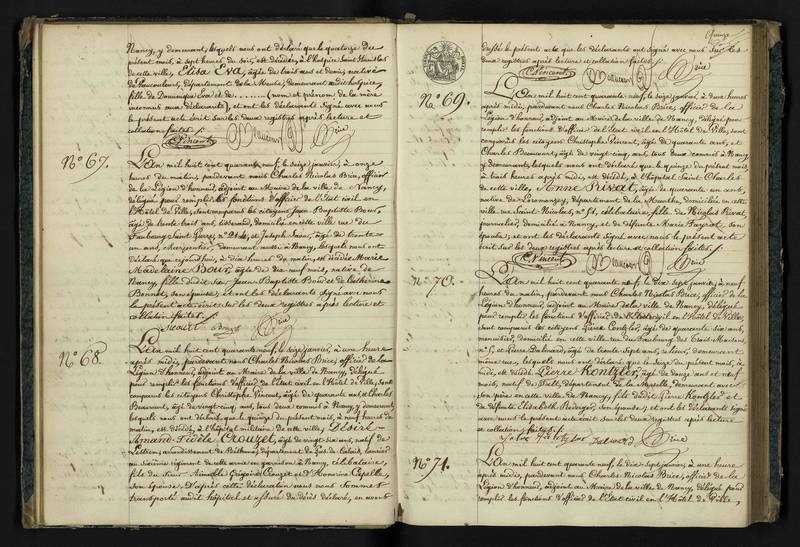 Nancy, y demeurant, lesquels nous ont déclaré que le quatorze du
présent mois, à sept heures du soir, est décédée, à l'hospice Saint Stanislas
de cette ville, Elisa Eva, âgée de trois mois et demi, native
de Vaucouleurs, département de la Meuse, demeurant audit hospice
fille de Dominique Eva et de ... (nom et prénom de la mère
inconnus aux déclarants), et ont les déclarants signé avec nous
le présent acte écrit sur les deux registres après lecture et
collation faites.
C. Vincent Beaumont Brice
N° 67.
L'An mil huit cent quarante neuf, le seize janvier, à onze
heures du matin, pardevant nous Charles Nicolas Brice, officier
de la Légion d'honneur, adjoint au Maire de la ville de Nancy,
délégué pour remplir les fonctions d'officier de l'état civil en
l'Hôtel de Ville, sont comparus les citoyens Jean Baptiste Bour,
âgé de trente huit ans, tisserand, domicilié en cette ville rue du
Faubourg Saint Pierre, n° et Joseph âgé de trente
un ans, charpentier, demeurant aussi à Nancy, lesquels nous ont
déclaré qu'aujourd'hui, à dix heures du matin, est décédée Marie
Madeleine Bour, âgée de dix neuf mois, native de
Nancy, fille dudit sieur Jean Baptiste Bour et de Catherine
Bonnet, son épouse; et ont les déclarants signé avec nous
le présent acte inscrit sur les deux registres après lecture et
collation faites.
Bour Brice
N° 68.
L'An mil huit cent quarante neuf, le seize janvier, à une heure
après midi, pardevant nous Charles Nicolas Brice, officier de la
Légion d'honneur, adjoint au Maire de la ville de Nancy, délégué
pour remplir les fonctions d'officier de l'état civil en l'Hôtel de Ville, sont
comparus les citoyens Christophe Vincent, âgé de quarante ans, et Charles
Beaumont, âgé de vingt cinq ans, tous deux commis à Nancy, y demeurant,
lesquels nous ont déclaré que le quinze du présent mois, à neuf heures du
matin, est décédé, à l'hôpital militaire de cette ville, Désiré
Amand Fidèle Crouzet, âgé de vingt six ans, natif de
arrondissement de Béthune, département du Pas de Calais, cavalier
au sixième régiment de cette arme en garnison à Nancy, célibataire,
fils de Aimable Grégoire Crouzet et d'Honorine Capelle,
son épouse. D'après cette déclaration nous nous sommes
transporté audit hôpital et assuré du décès déclaré, en avons
Quinze
dressé le présent acte que les déclarants ont signé avec nous sur les
deux registres après lecture et collation faites.
C. Vincent Beaumont Brice
N° 69.
L'An mil huit cent quarante neuf, le seize janvier, à deux heures
après midi, pardevant nous Charles Nicolas Brice, officier de la
Légion d'honneur, adjoint au Maire de la ville de Nancy, délégué pour
remplir les fonctions d'officier de l'état civil en l'Hôtel de Ville, sont
comparus les citoyens Christophe Vincent, âgé de quarante ans, et
Charles Beaumont, âgé de vingt cinq ans, tous deux commis à Nancy
y demeurant, lesquels nous ont déclaré que le quinze du présent mois,
à trois heures après midi, est décédée, à l'hôpital Saint Charles
de cette ville, Anne Privat, âgée de quarante un ans,
native de département de la Meurthe, domiciliée en cette
ville rue Saint Nicolas, n° 51, célibataire, fille de Nicolas Privat,
journalier, domicilié à Nancy, et de défunte Marie son
épouse; et ont les déclarants signé avec nous le présent acte
écrit sur les deux registres après lecture et collation faites.
C. Vincent Beaumont Brice
N° 70.
L'An mil huit cent quarante neuf, le dix sept janvier, à neuf
heures du matin, pardevant nous Charles Nicolas Brice, officier de la
Légion d'honneur, adjoint au Maire de la ville de Nancy, délégué
pour remplir les fonctions d'officier de l'état civil en l'Hôtel de Ville,
sont comparus les citoyens Pierre Kontzler, âgé de quarante six ans,
menuisier, domicilié en cette ville rue du Faubourg des Trois Maisons,
n° et Pierre âgé de trente sept ans, demeurant
même rue, lesquels nous ont déclaré que le seize du présent mois, à
midi, est décédé Pierre Kontzler, âgé de douze ans et neuf
mois, natif de département de la Moselle, demeurant avec
son père en cette ville de Nancy, fils dudit Pierre Kontzler et
de défunte Elisabeth son épouse; et ont les déclarants signé
avec nous le présent acte écrit sur les deux registres après lecture
et collation faites.
Brice
N° 71.
L'An mil huit cent quarante neuf, le dix sept janvier, à une heure
après midi, pardevant nous Charles Nicolas Brice, officier de la
Légion d'honneur, adjoint au Maire de la ville de Nancy, délégué pour
remplir les fonctions d'officier de l'état civil en l'Hôtel de Ville,